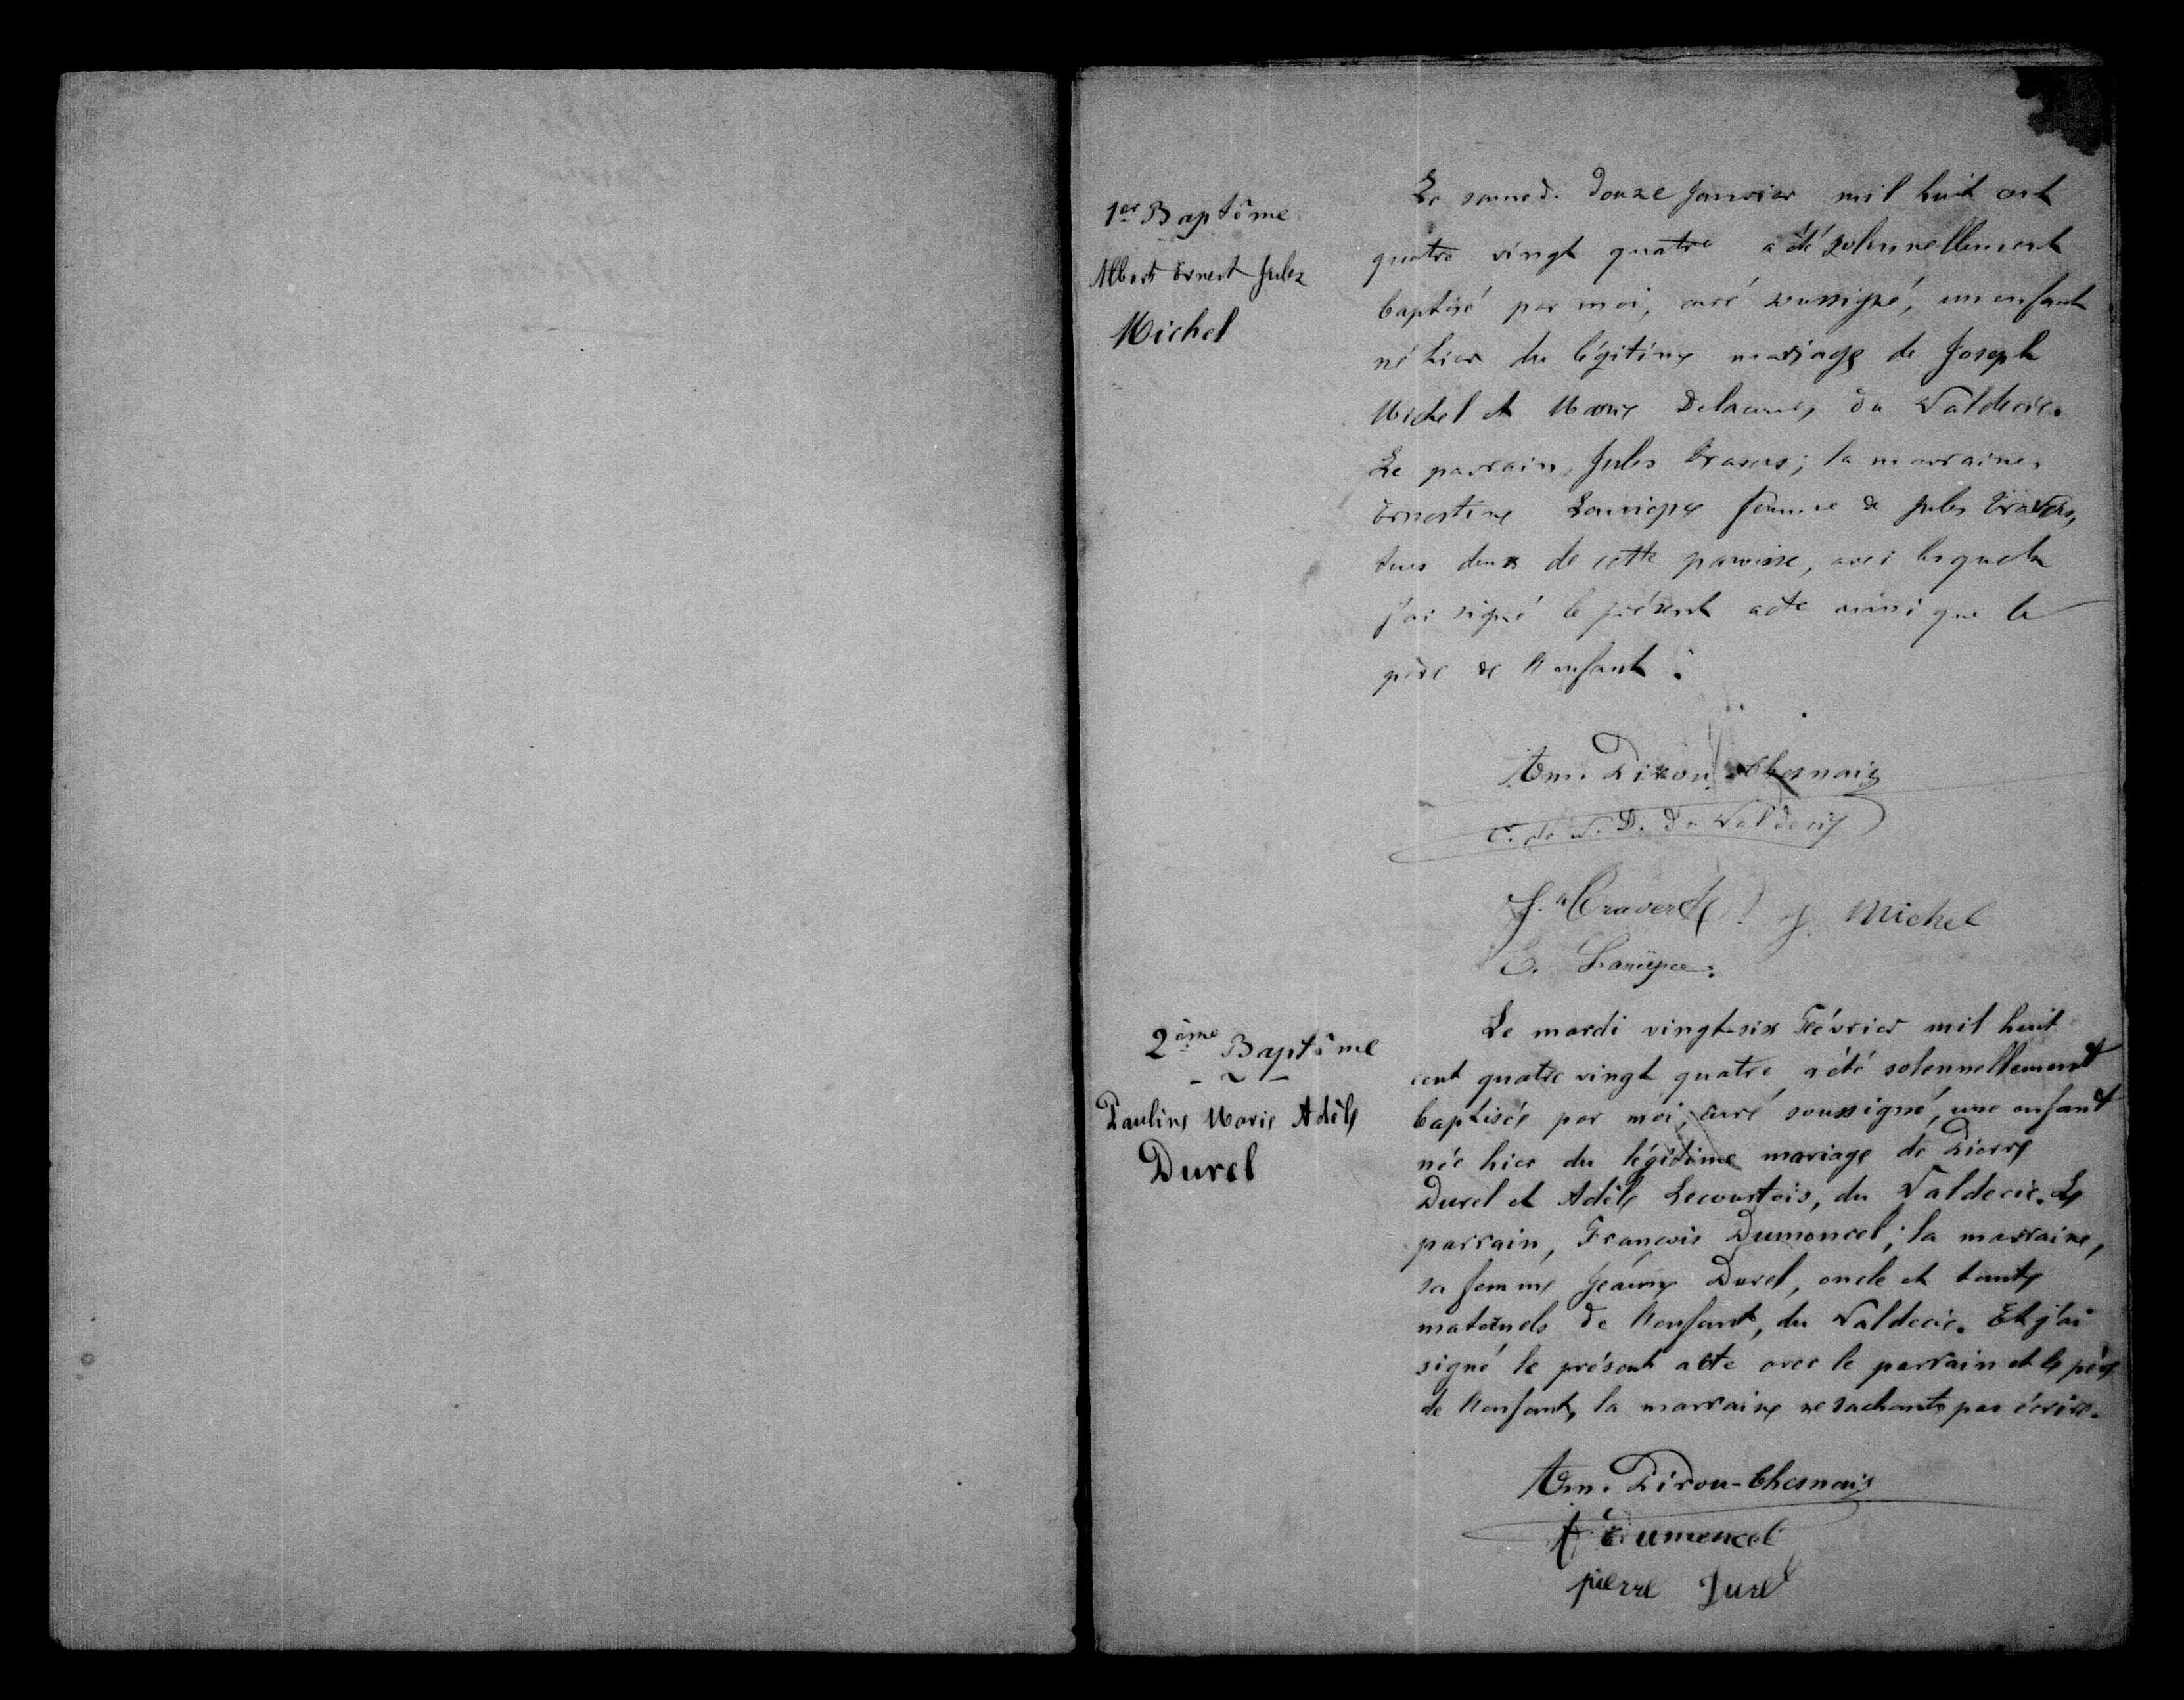 1er Baptême
Albert Ernest Jules
Michel
Le samedi douze Janvier mil huit cent
quatre vingt quatre a été solennellement
baptisé par moi, curé soussigné, un enfant
né hier du légitime mariage de Joseph
Michel et Marie du Valdecie.
Le parrain, Jules Travers; la marraine,
Ernestine femme de Jules Travers,
tous deux de cette paroisse, avec lesquels
j'ai signé le présent acte ainsi que le
père de l'enfant.
Am. Pirou-Chesnais
c. de N. D. du Valdecie
J. Travers J. Michel
E.
2ème Baptême
Pauline Marie Adèle
Durel
Le mardi vingt-six Février mil huit
cent quatre vingt quatre a été solennellement
baptisée par moi, curé soussigné, une enfant
née hier du légitime mariage de Pierre
Durel et Adèle Lecourtois, du Valdecie. Le
parrain, François Dumoncel; la marraine,
sa femme Jeanne Durel, oncle et tante
maternels de l'enfant, du Valdecie. Et j'ai
signé le présent acte avec le parrain et le père
de l'enfant, la marraine ne sachant pas écrire.
Am. Pirou-Chesnais
f Dumoncel
pierre Durel